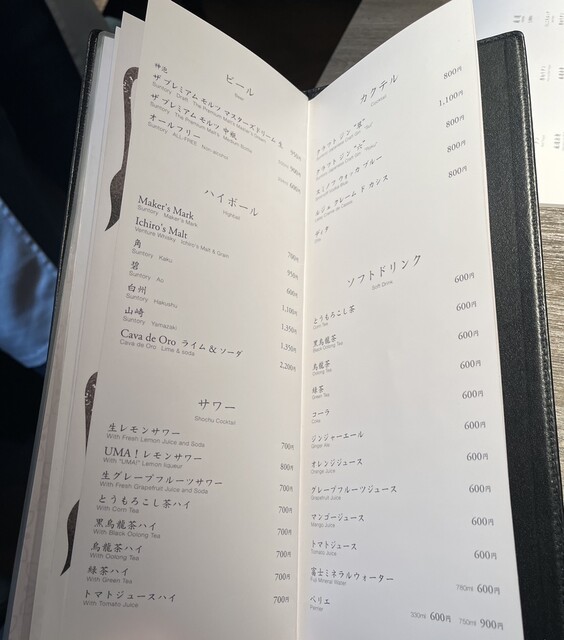 ビール
Beer
神泡
ザ プレミアム モルツ マスターズドリーム 生
Suntory Draft "The Premium Malt's Master's Dream"
ザ プレミアム モルツ 中瓶
Suntory "The Premium Malt's" Medium Bottle
900円
オールフリー
Suntory ALL-FREE Non-alcohol
600円
ハイボール
Highball
Maker's Mark
Suntory Maker's Mark
700円
Ichiro's Malt
Venture Whisky Ichiro's Malt & Grain
950円
角
Suntory Kaku
600円
碧
Suntory Ao
1,100円
白州
Suntory Hakushu
1,350円
山崎
Suntory Yamazaki
1,350円
Cava de Oro ライム & ソーダ
Cava de Oro Lime & soda
2,200円
サワー
Shochu Cocktail
生レモンサワー
With Fresh Lemon Juice and Soda
700円
UMA！レモンサワー
With "UMA!" Lemon liqueur
800円
生グレープフルーツサワー
With Fresh Grapefruit Juice and Soda
700円
とうもろこし茶ハイ
With Corn Tea
700円
黒烏龍茶ハイ
With Black Oolong Tea
700円
烏龍茶ハイ
With Oolong Tea
700円
緑茶ハイ
With Green Tea
700円
トマトジュースハイ
With Tomato Juice
700円
カクテル
Cocktail
クラフト ジン
800円
クラフト ジン
1,100円
スミノフ ウォッカ ブルー
800円
ルジェ クレーム ド カシス
800円
ソフトドリンク
Soft Drink
とうもろこし茶
Corn Tea
600円
黒烏龍茶
Black Oolong Tea
600円
烏龍茶
Oolong Tea
600円
緑茶
Green Tea
600円
コーラ
Coke
600円
ジンジャーエール
Ginger Ale
600円
オレンジジュース
Orange Juice
600円
グレープフルーツジュース
Grapefruit Juice
600円
マンゴージュース
Mango Juice
600円
トマトジュース
Tomato Juice
600円
富士ミネラルウォーター
Fuji Mineral Water
780ml 600円
ペリエ
Perrier
330ml 600円 750ml 900円